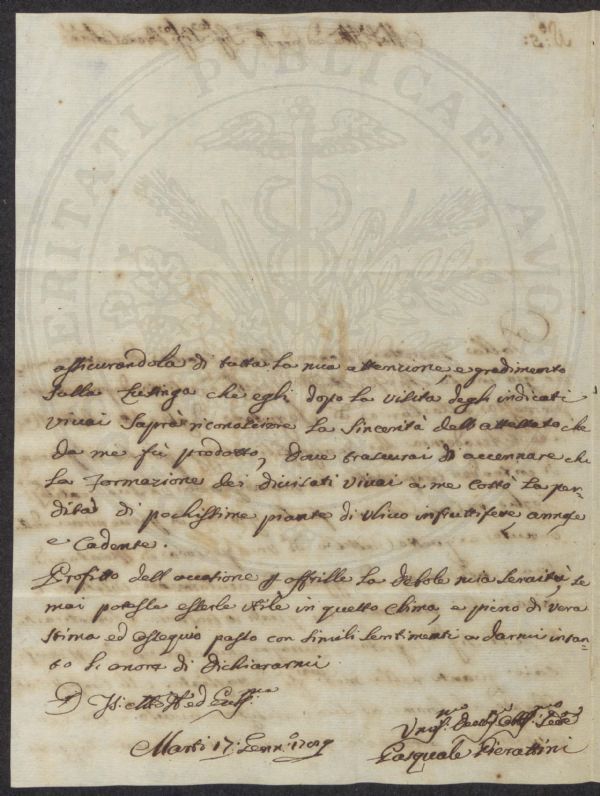 assicurandola di tutta la mia attenzione, e gradimento
sulla lusinga che egli dopo la vilita degli indicati
vivai saprà riconoscere la sincerità dell'attestato che
da me fù prodotto, dove trascurai di accennare che
la Formazione dei divisati vivai a me costò la per=
dita di pochissime piante di Ulivo infruttifere, annose
e cadente.
Profitto dell'occasione offrille la debole mia servitù, se
mai potesse esserle utile in questo Clima, e pieno di vera
stima ed ossequio passo con simili sentimenti a darmi intan=
to l'onore di dichiararmi
Pasquale Pierattini